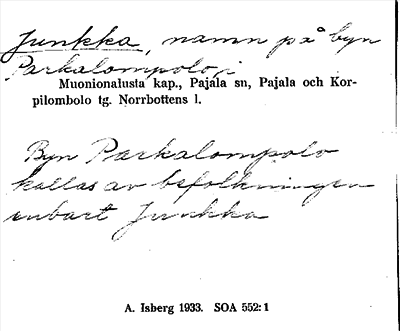 Junkka, namn på byn
Parkalompolo i
Muonionalusta kap., Pajala sn, Pajala och Kor-
pilombolo tg. Norrbottens l.
Byn Parkalompolo
kallas av befolkningen
enbart Junkka
A. Isberg 1933. SOA 552:1